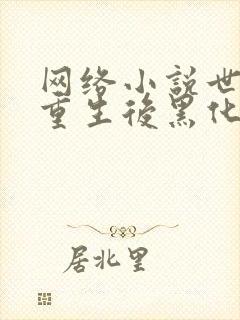 网络小説世
重生後黑化
居北里